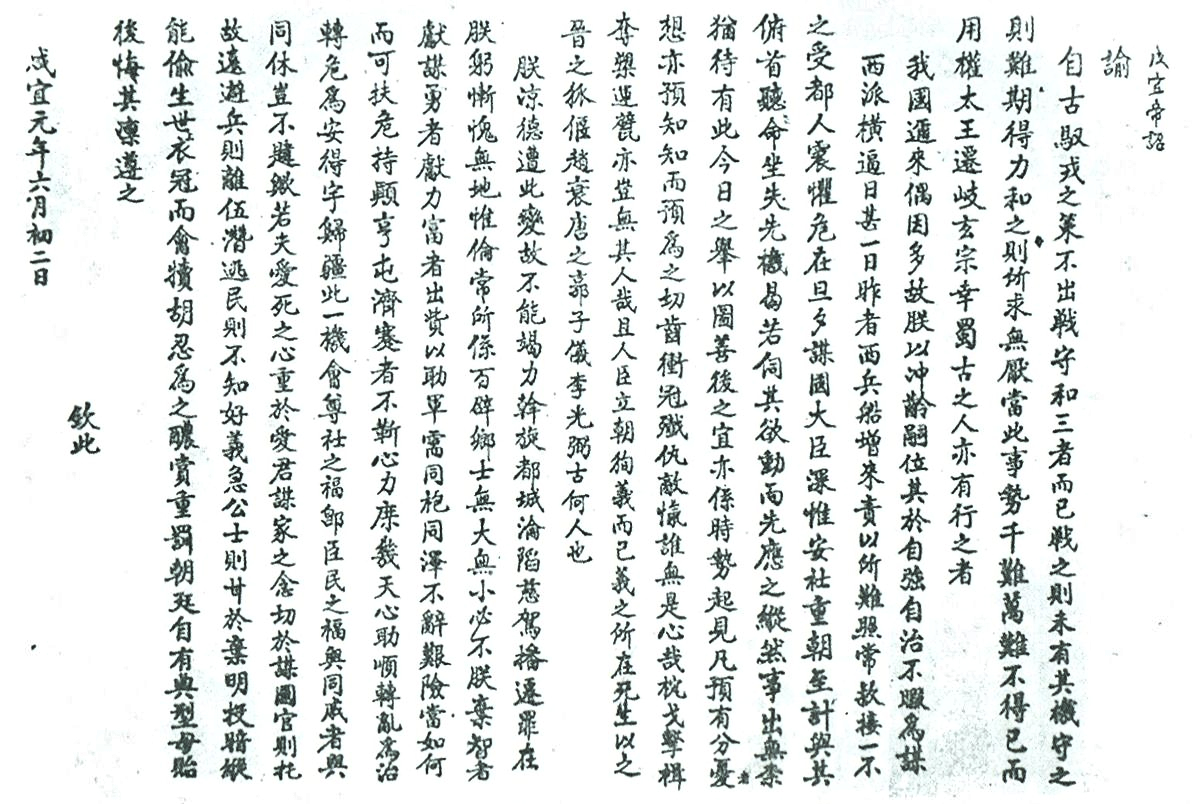 咸宜帝詔
諭
自古馭戎之策不出戰守和三者而已戰之則未有其機守之
則難期得力和之則所求無厭當此事勢千難萬難不得已而
用權太王遷岐玄宗幸蜀古之人亦有行之者
我國邇來偶因多故朕以冲齡嗣位其於自強自治不暇爲謀
西派橫逼日甚一日昨者西兵船增來責以所難照常款接一不
之受都人震懼危在旦夕謀國大臣深惟安社重朝至計與其
俯首聽命坐失先機曷若伺其欲動而先應之縱然事出無柰
猶待有此今日之舉以圖善後之宜亦係時勢起見凡預有分憂者
想亦預知知而預爲之切齒衝冠殲仇敵愾誰無是心哉枕戈擊楫
奪槊運甓亦豈無其人哉且人臣立朝狥義而已義之所在死生以之
晉之狐偃趙衰唐之郭子儀李光弼古何人也
朕凉德遭此變故不能竭力幹旋都城淪陷慈駕播遷罪在
朕躬慚愧無地惟倫常所係百辟鄉士無大無小必不朕棄智者
獻謀勇者獻力富者出貲以助軍需同袍同澤不辭艱險當如何
而可扶危持顚亨屯濟蹇者不靳心力庶幾天心助順轉亂爲治
轉危爲安得宇歸疆此一機會尊社之福卽臣民之福與同戚者與
同休豈不韙歟若夫愛死之心重於愛君謀家之念切於謀國官則托
故遠避兵則離伍潛逃民則不知好義急公士則甘於棄明投暗縱
能偷生世衣冠而禽犢胡忍爲之醲賞重罰朝廷自有典型毋貽
後悔其凜遵之
欽此
咸宜元年六月初二日